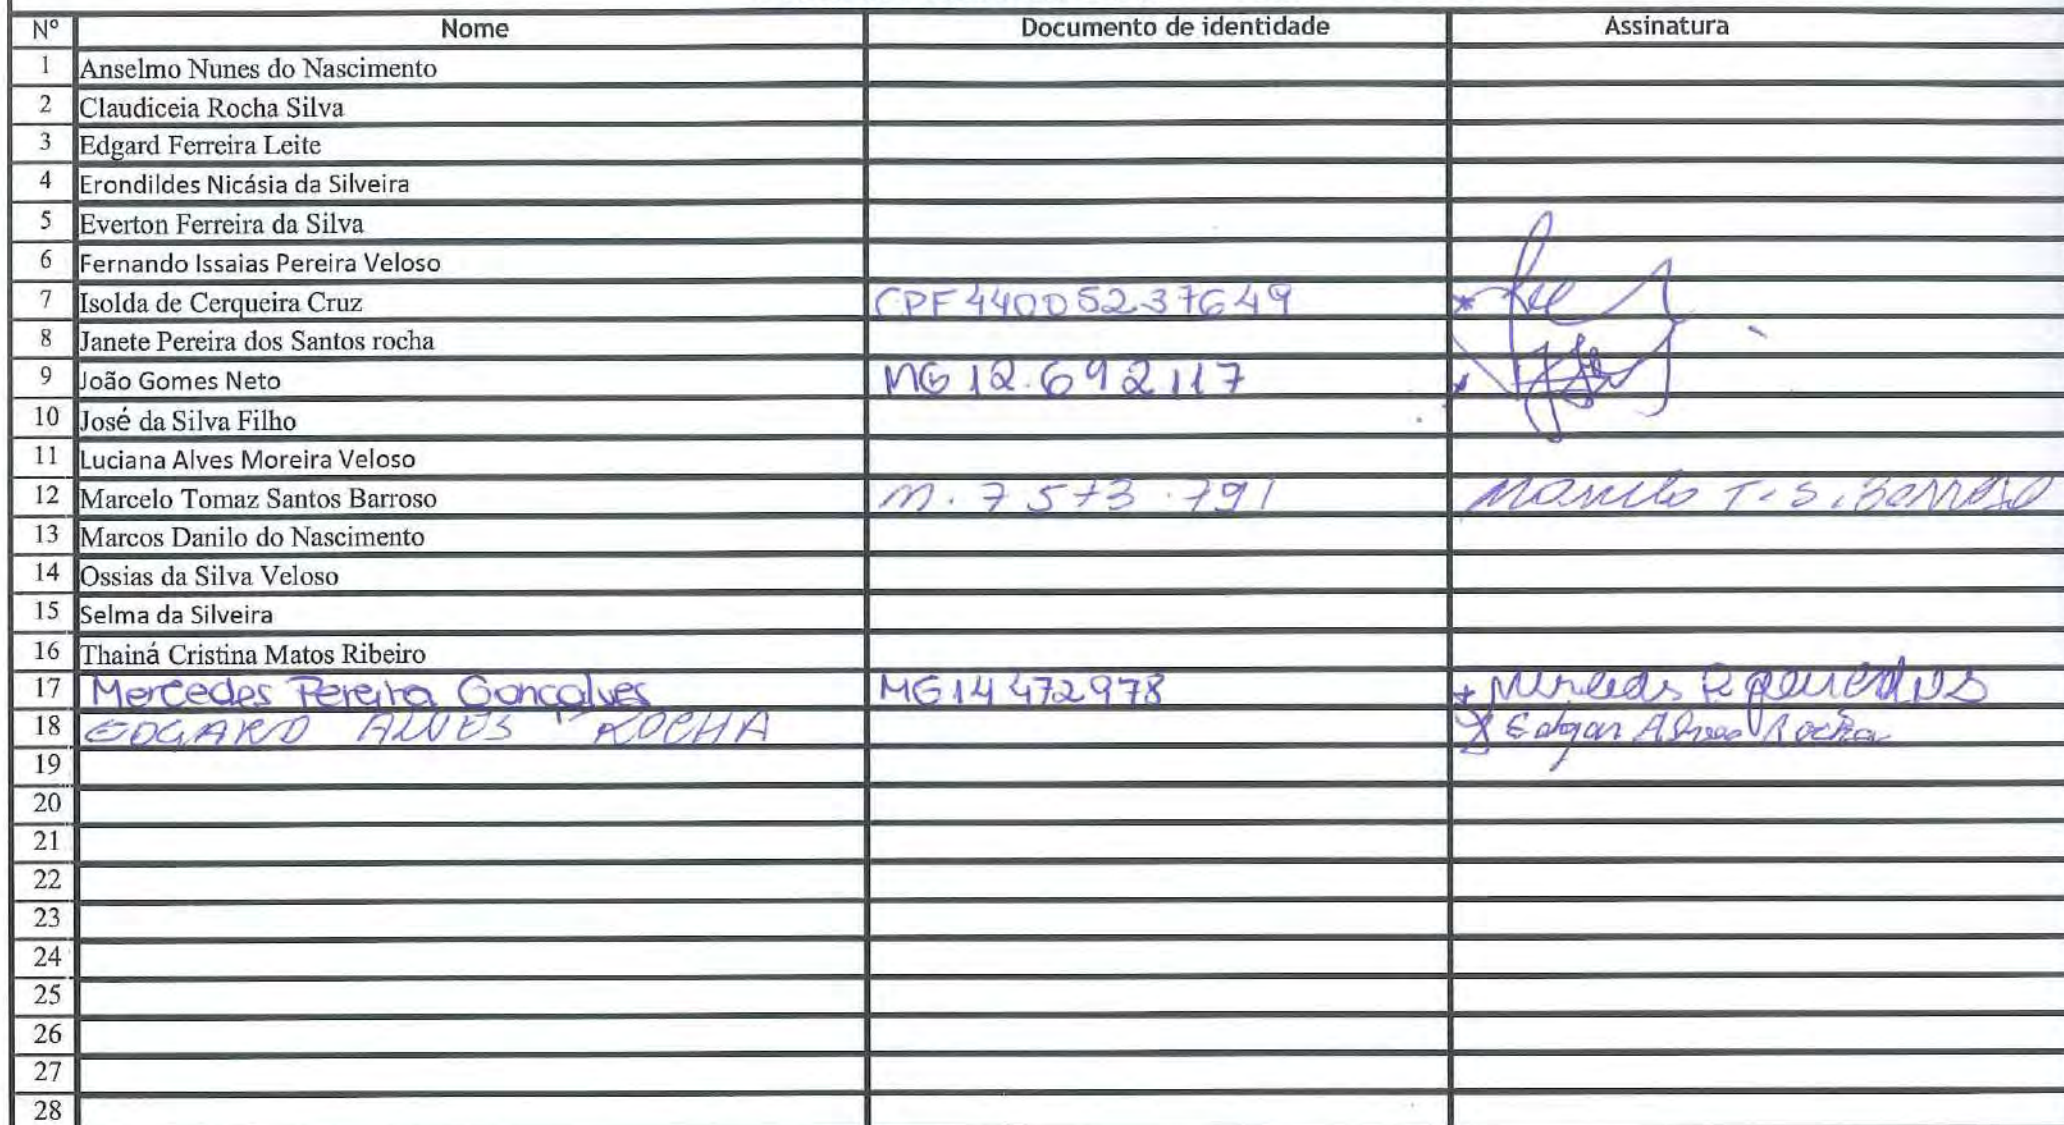 Nº Nome Documento de identidade Assinatura
1 Anselmo Nunes do Nascimento
2 Claudiceia Rocha Silva
3 Edgard Ferreira Leite
4 Erondildes Nicásia da Silveira
5 Everton Ferreira da Silva
6 Fernando Issaias Pereira Veloso
7 Isolda de Cerqueira Cruz CPF 44005237649
8 Janete Pereira dos Santos rocha
9 João Gomes Neto MG 12.692117
10 José da Silva Filho
11 Luciana Alves Moreira Veloso
12 Marcelo Tomaz Santos Barroso M. 7573.791 Marcelo T. S. Barroso
13 Marcos Danilo do Nascimento
14 Ossias da Silva Veloso
15 Selma da Silveira
16 Thainá Cristina Matos Ribeiro
17 Mercedes Pereira Gonçalves MG14 472978
18 EDGARD ALVES ROCHA Edgar Alves Rocha
19
20
21
22
23
24
25
26
27
28